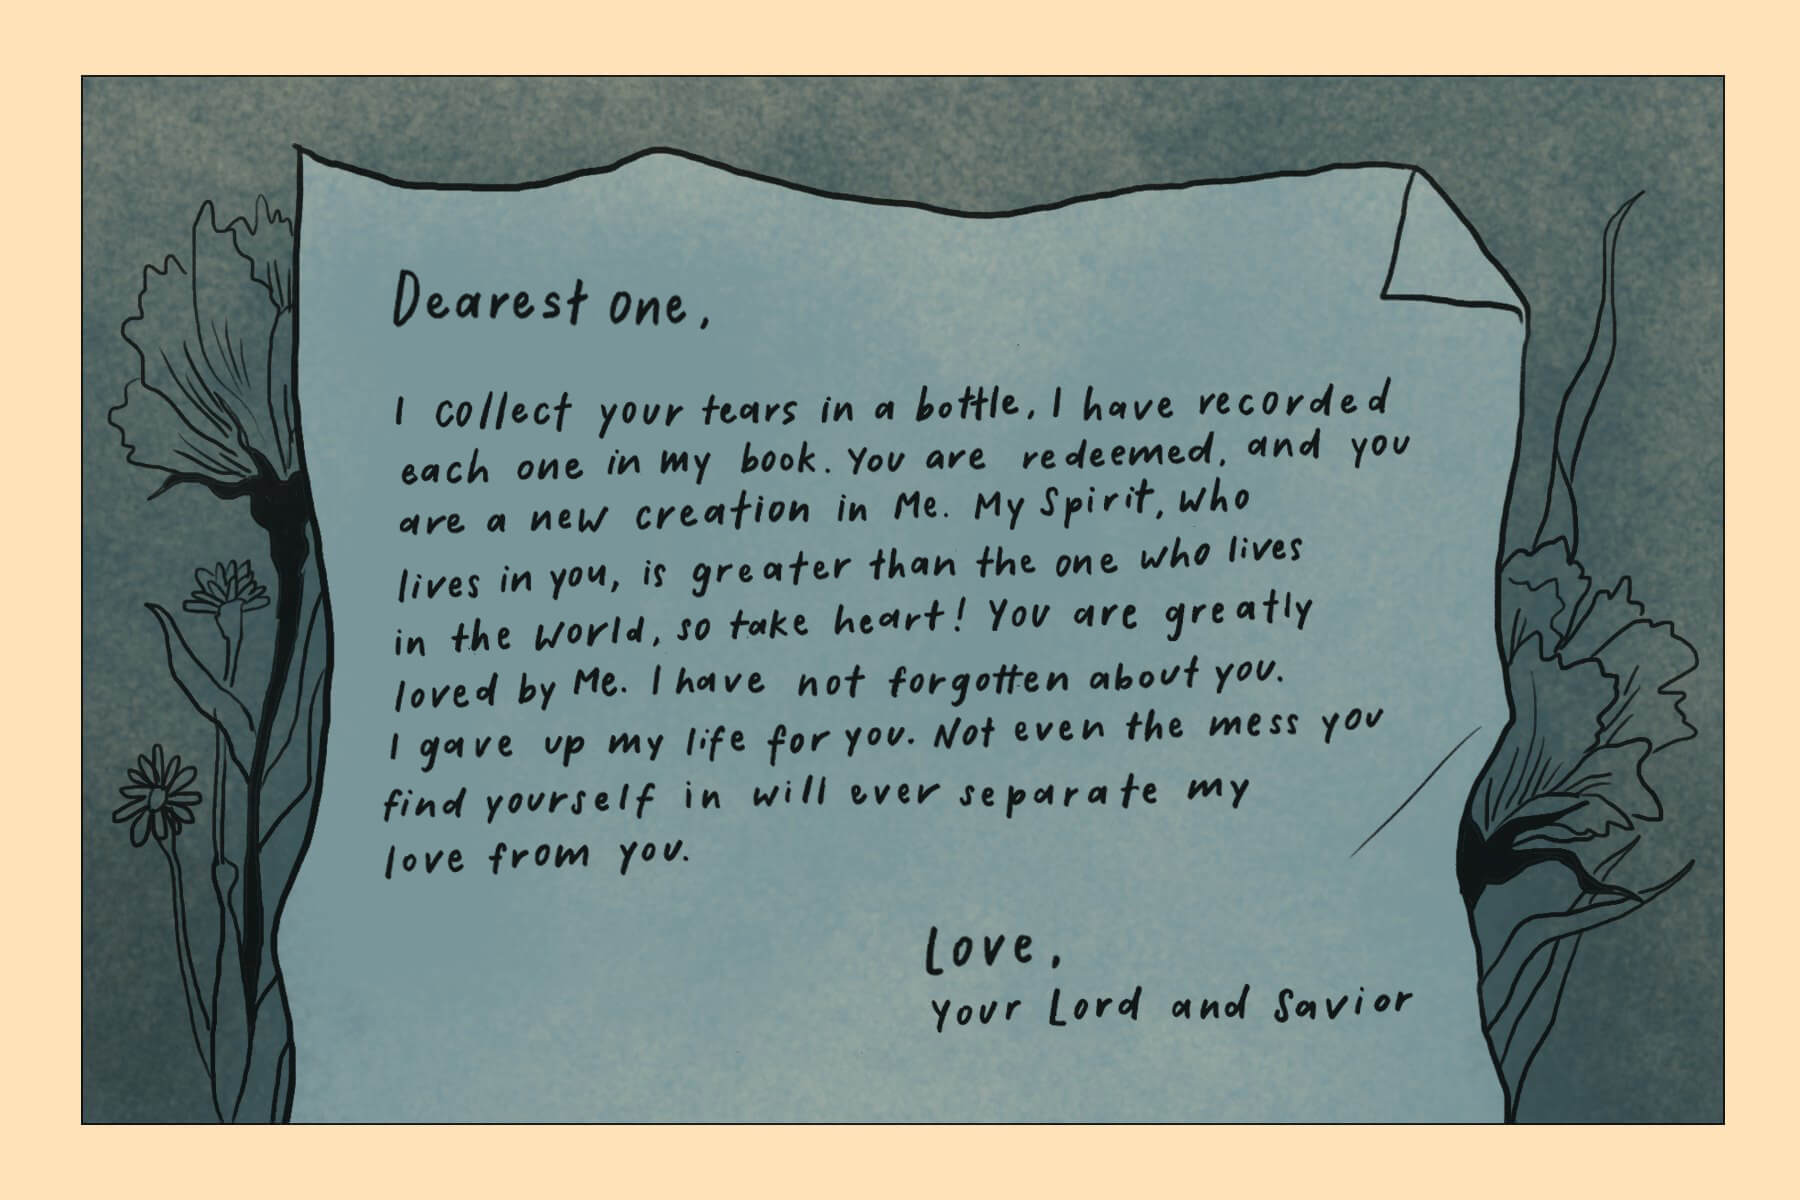 Dearest one,
I collect your tears in a bottle. I have recorded
each one in my book. You are redeemed, and you
are a new creation in Me. My Spirit, who
lives in you, is greater than the one who lives
in the world, so take heart! You are greatly
loved by Me. I have not forgotten about you.
I gave up my life for you. Not even the mess you
find yourself in will ever separate my
love from you.
Love,
your Lord and Savior